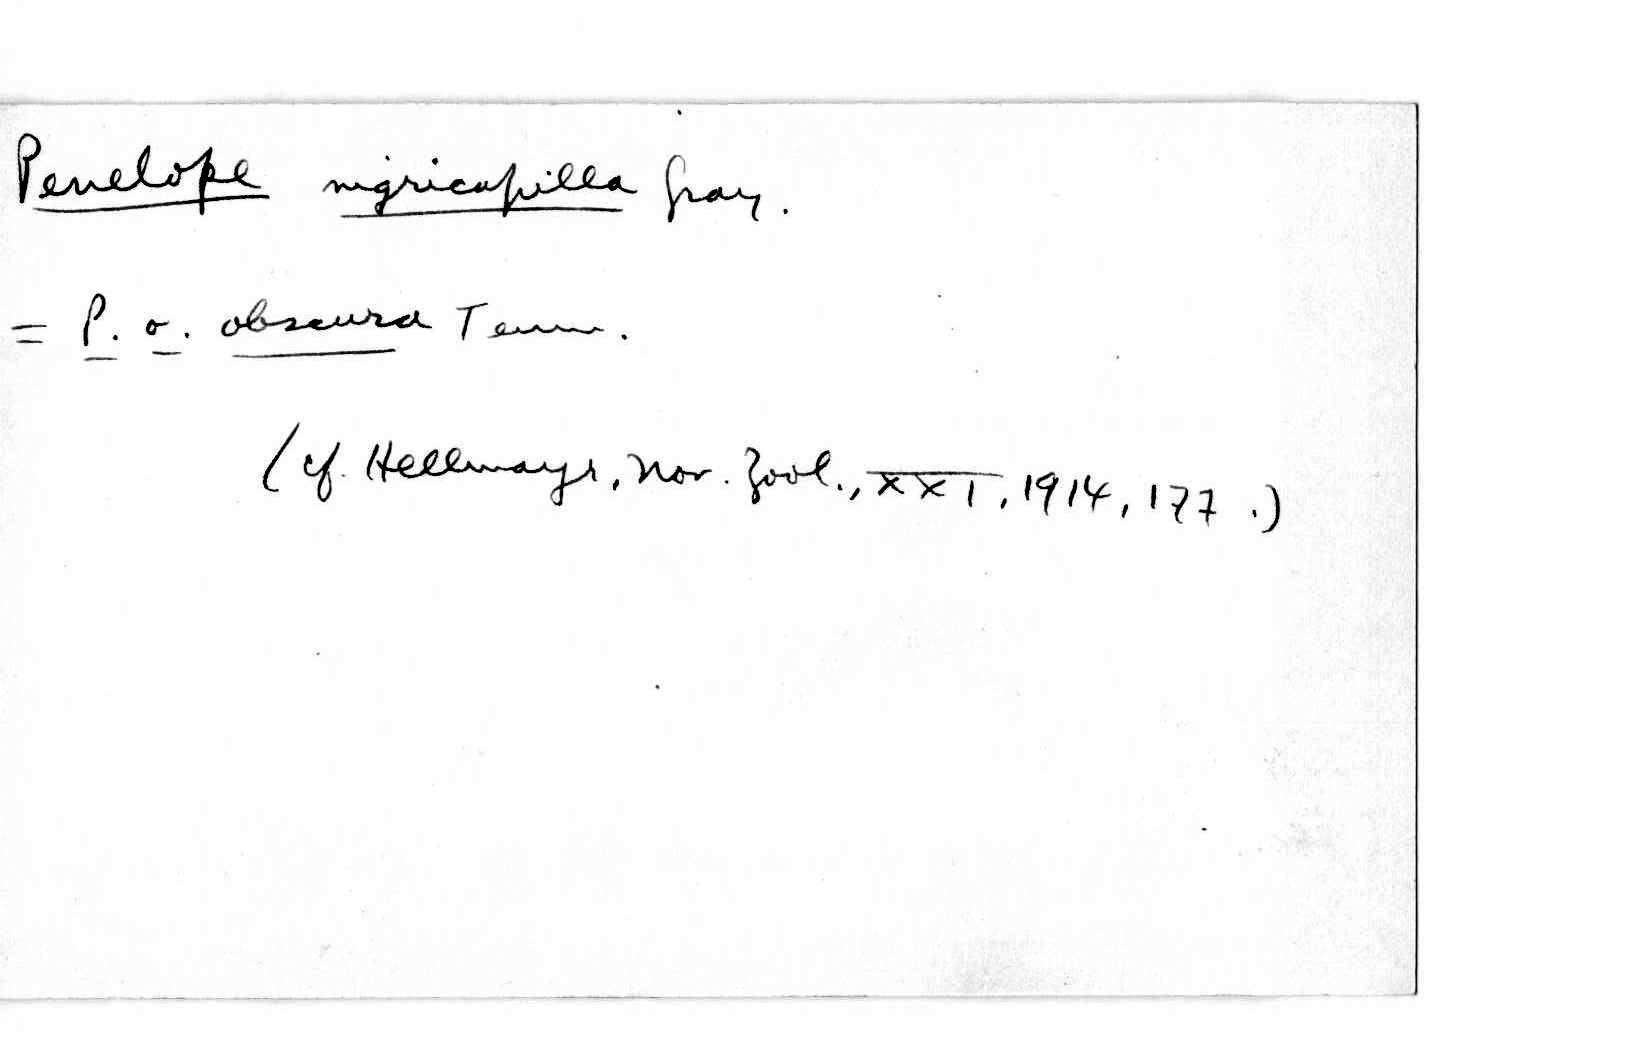 Penelope nigricapilla Gray.
= P. o. obscura Temm.
(cf. Hellmayr, Nov. Zool., XXI, 1914, 177.)